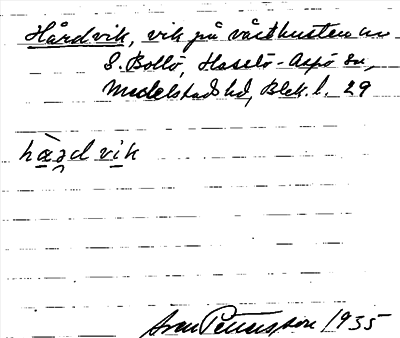 Hårdvik, vik på västkusten av
S. Bollö, Hasslö-Aspö sn,
Medelstads hd, Blek. l. 29
hàrd vik
Sven Petersson 1935